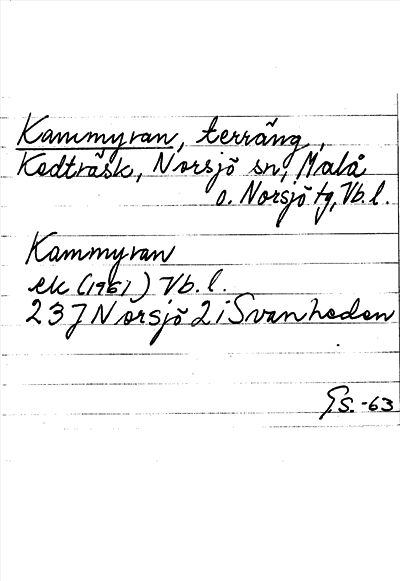 Kammyran, terräng,
Kedträsk, Norsjö sn, Malå
o. Norsjö tg, Vb. l.
Kammyran
ek (1961) Vb. l.
23J Norsjö 2i Svanheden
G.S. -63